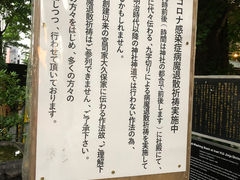 コロナ感染症病魔退散祈祷実施中
時前後(時間は神社の都合で前後します)に社殿にて、
代々伝わる、九字切りによる病魔退散祈祷を実施して
明治時代以降の神社神道では行わない作法の為、
かもしれません。
創建以来の宮司家大久保家に伝わる作法故、ご理解下
祈祷はご参列できません、ご了承下さい。
の方々をはじめ、多くの方々の
じつつ、行わせて頂いております。